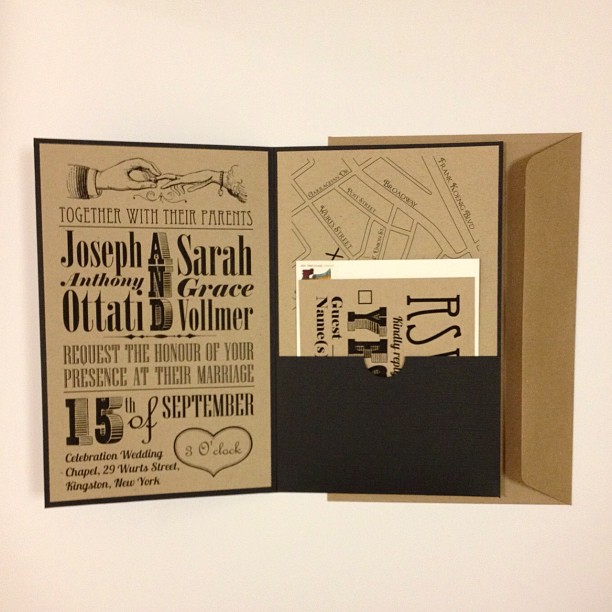 TOGETHER WITH THEIR PARENTS
Joseph AND Sarah
Anthony Grace
Ottati Vollmer
REQUEST THE HONOUR OF YOUR
PRESENCE AT THEIR MARRIAGE
15th of SEPTEMBER
3 O'clock
Celebration Wedding
Chapel, 29 Wurts Street,
Kingston, New York
BROADWAY
FRANK KOENIG BLVD
POST STREET
WURTS STREET
X
RSV
Kindly repl
Guest
Name(s